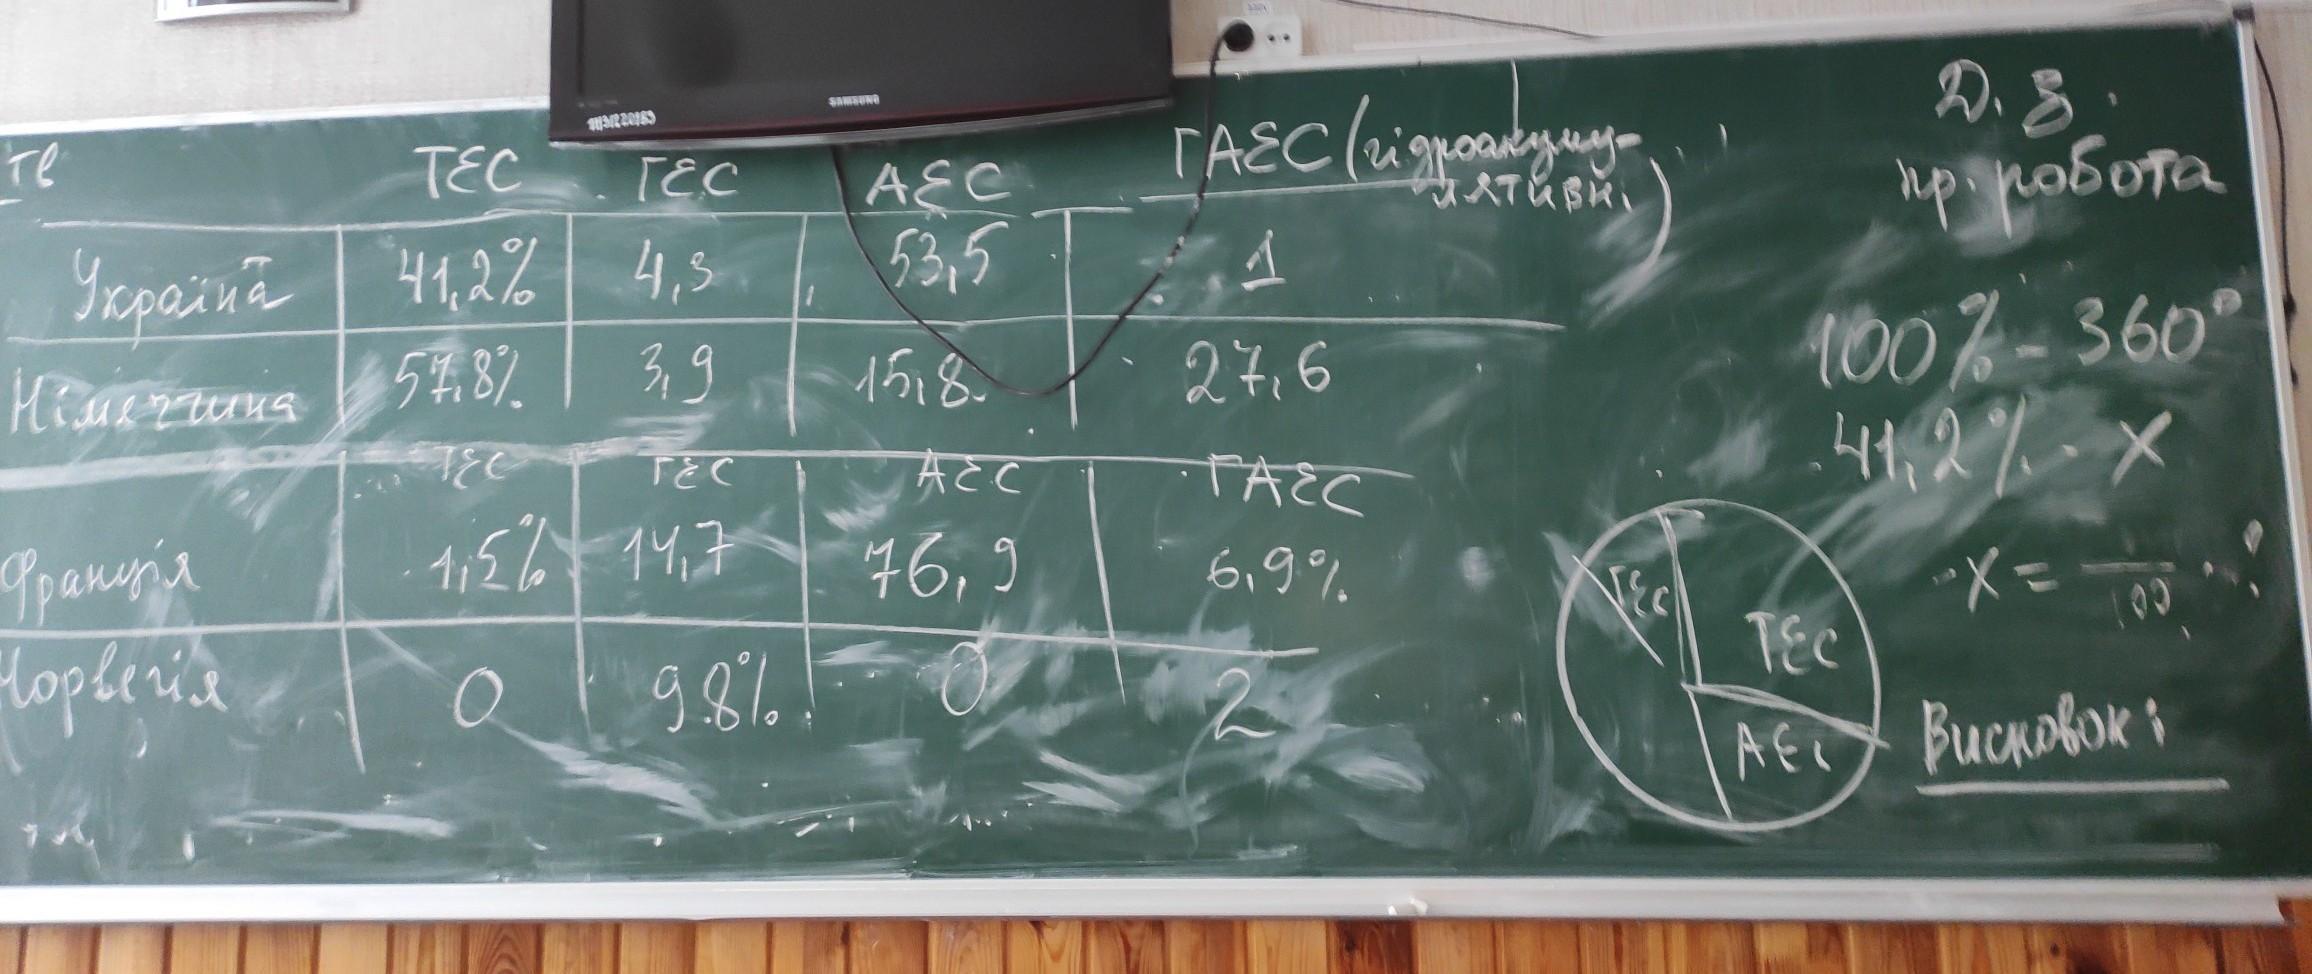 SAMSUNG
ТЕС ГЕС АЕС ГАЕС (гідроакуму-
лятивні)
Україна 41,2% 4,3 53,5 1
Німеччина 57,8% 3,9 15,8 27,6
ТЕС ГЕС АЕС ГАЕС
Франція 1,5% 14,7 76,9 6,9%
Норвегія 0 98% 0 2
Д. З.
пр. робота
100% - 360°
41,2% - X
X = 100
ГЕС
ТЕС
АЕС
Висновок: